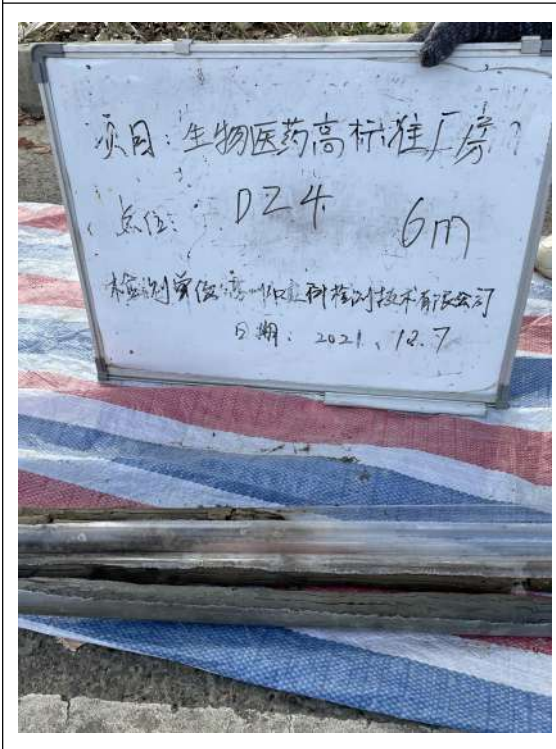 项目:生物医药高标准厂房
点位: DZ4 6m
检测单位:州科检测技术有限公司
日期:2021.12.7